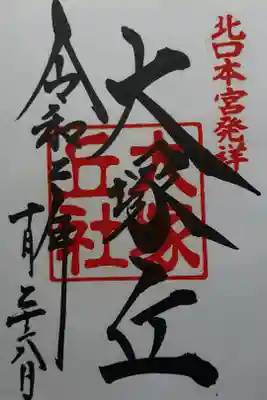 北口本宮発祥
大塚丘
大塚
丘社
令和二年
十月二十八日